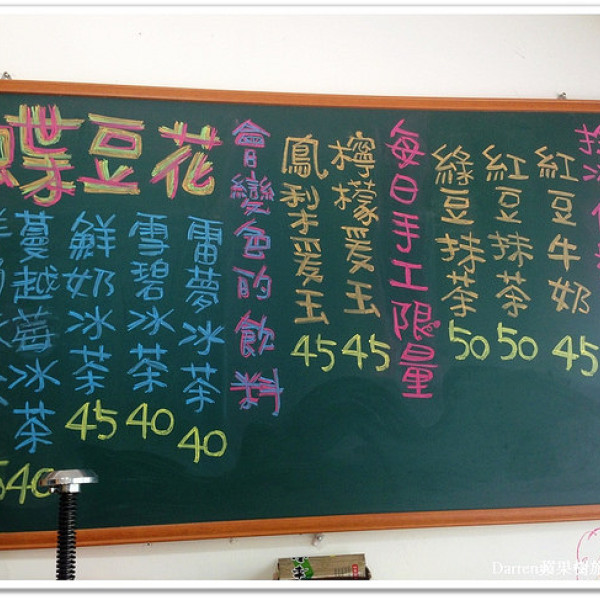 紅豆牛奶 45
紅豆抹茶 50
綠豆抹茶 50
每日手工限量
檸檬爱玉 45
鳳梨爱玉 45
會變色的飲料
蝶豆花
雷夢冰茶 40
雪碧冰茶 40
鮮奶冰茶 45
蔓越莓冰茶 40
Darren蘋果樹旅